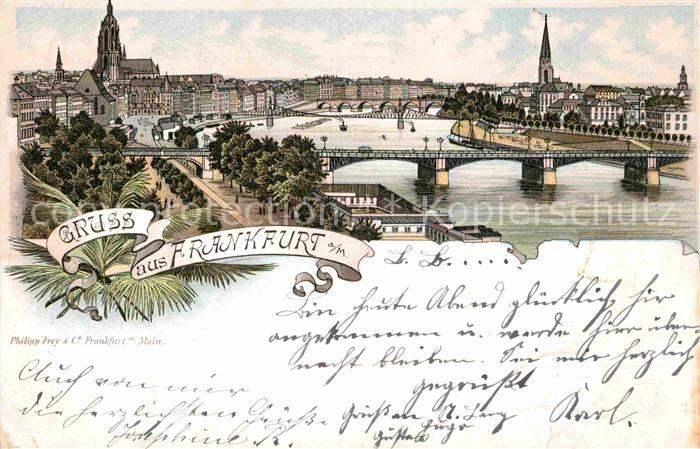 GRUSS
aus FRANKFURT a/M.
Philipp Frey & Co. Frankfurt a/Main.
L. B. . . . .
Bin heute Abend glücklich hir
angekommen u. werde hier über-
nacht bleiben. Sei mir herzlich
gegrüßt
Karl.
Auch von mir
die herzlichsten Grüße
Josephine R.
Gruß an
Gustav Hugo
Kopierschutz